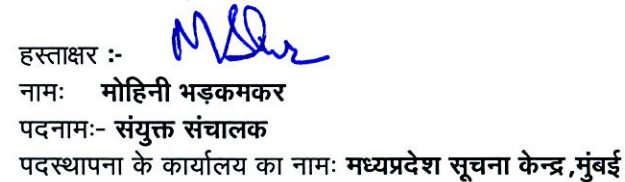 हस्ताक्षर :-
नामः मोहिनी भड़कमकर
पदनामः- संयुक्त संचालक
पदस्थापना के कार्यालय का नामः मध्यप्रदेश सूचना केन्द्र ,मुंबई